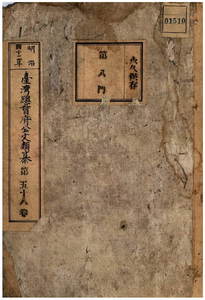 01510
永久保存
第八門
明治四十二年
臺灣總督府公文類纂 第五十八卷